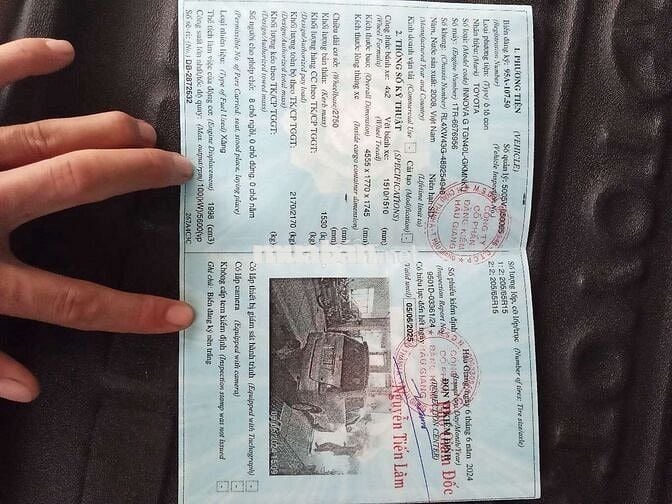 1. PHƯƠNG TIỆN (VEHICLE)
Biển đăng ký: 95A-107.50
(Registration Number)
Số quản lý: 5005V-
(Vehicle Inspection No.)
Loại phương tiện: (Type) ô tô con
Nhãn hiệu: (Mark) TOYOTA
Số loại: (Model code) INNOVA G TGN40L-GKMNKU
Số máy: (Engine Number) 1TR-6676956
Số khung: (Chassis Number) RL4XW43G-489254948
Năm, Nước sản xuất: 2008, Việt Nam
(Manufactured Year and Country)
Niên hạn SD:
(Lifetime limit to)
Kinh doanh vận tải (Commercial Use) -
Cải tạo (Modification) -
2. THÔNG SỐ KỸ THUẬT (SPECIFICATIONS)
Công thức bánh xe: 4x2
(Wheel Formula)
Vết bánh xe: 1510/1510 (mm)
(Wheel Tread)
Kích thước bao: (Overall Dimension) 4555 x 1770 x 1745 (mm)
Kích thước lòng thùng xe (Inside cargo container dimension)
(mm)
Chiều dài cơ sở: (Wheelbase) 2750 (mm)
Khối lượng bản thân: (Kerb mass) 1530 (kg)
Khối lượng hàng CC theo TK/CP TGGT:
(Design/Authorized pay load) (kg)
Khối lượng toàn bộ theo TK/CP TGGT: 2170/2170 (kg)
(Design/Authorized total mass)
Khối lượng kéo theo TK/CP TGGT: (kg)
(Design/Authorized towed mass)
Số người cho phép chở: 8 chỗ ngồi, 0 chỗ đứng, 0 chỗ nằm
(Permissible No. of Pers Carried: seat, stood place, laying place)
Loại nhiên liệu: (Type of Fuel Used) Xăng
Thể tích làm việc của động cơ: (Engine Displacement) 1998 (cm3)
Công suất lớn nhất/tốc độ quay: (Max. output/rpm) 100(kW)/5600vph
Số sê-ri: (No.) DB-2872632
267A4C3C
Số lượng lốp, cỡ lốp/trục (Number of tires: Tire size/axle)
1: 2; 205/65R15
2: 2; 205/65R15
Số phiếu kiểm định
(Inspection Report No)
9501D-03361/24
Có hiệu lực đến hết ngày
(Valid until) 05/06/2025
Hậu Giang, ngày 6 tháng 6 năm 2024
(Issued on: Day/Month/Year)
ĐƠN VỊ KIỂM ĐỊNH
(INSPECTION CENTER)
Giám Đốc
CÔNG TY
CỔ PHẦN
ĐĂNG KIỂM
HẬU GIANG
Nguyễn Tiến Lãm
Có lắp thiết bị giám sát hành trình (Equipped with Tachograph) -
Có lắp camera (Equipped with camera) -
Không cấp tem kiểm định (Inspection stamp was not issued) -
Ghi chú: Biển đăng ký nền trắng